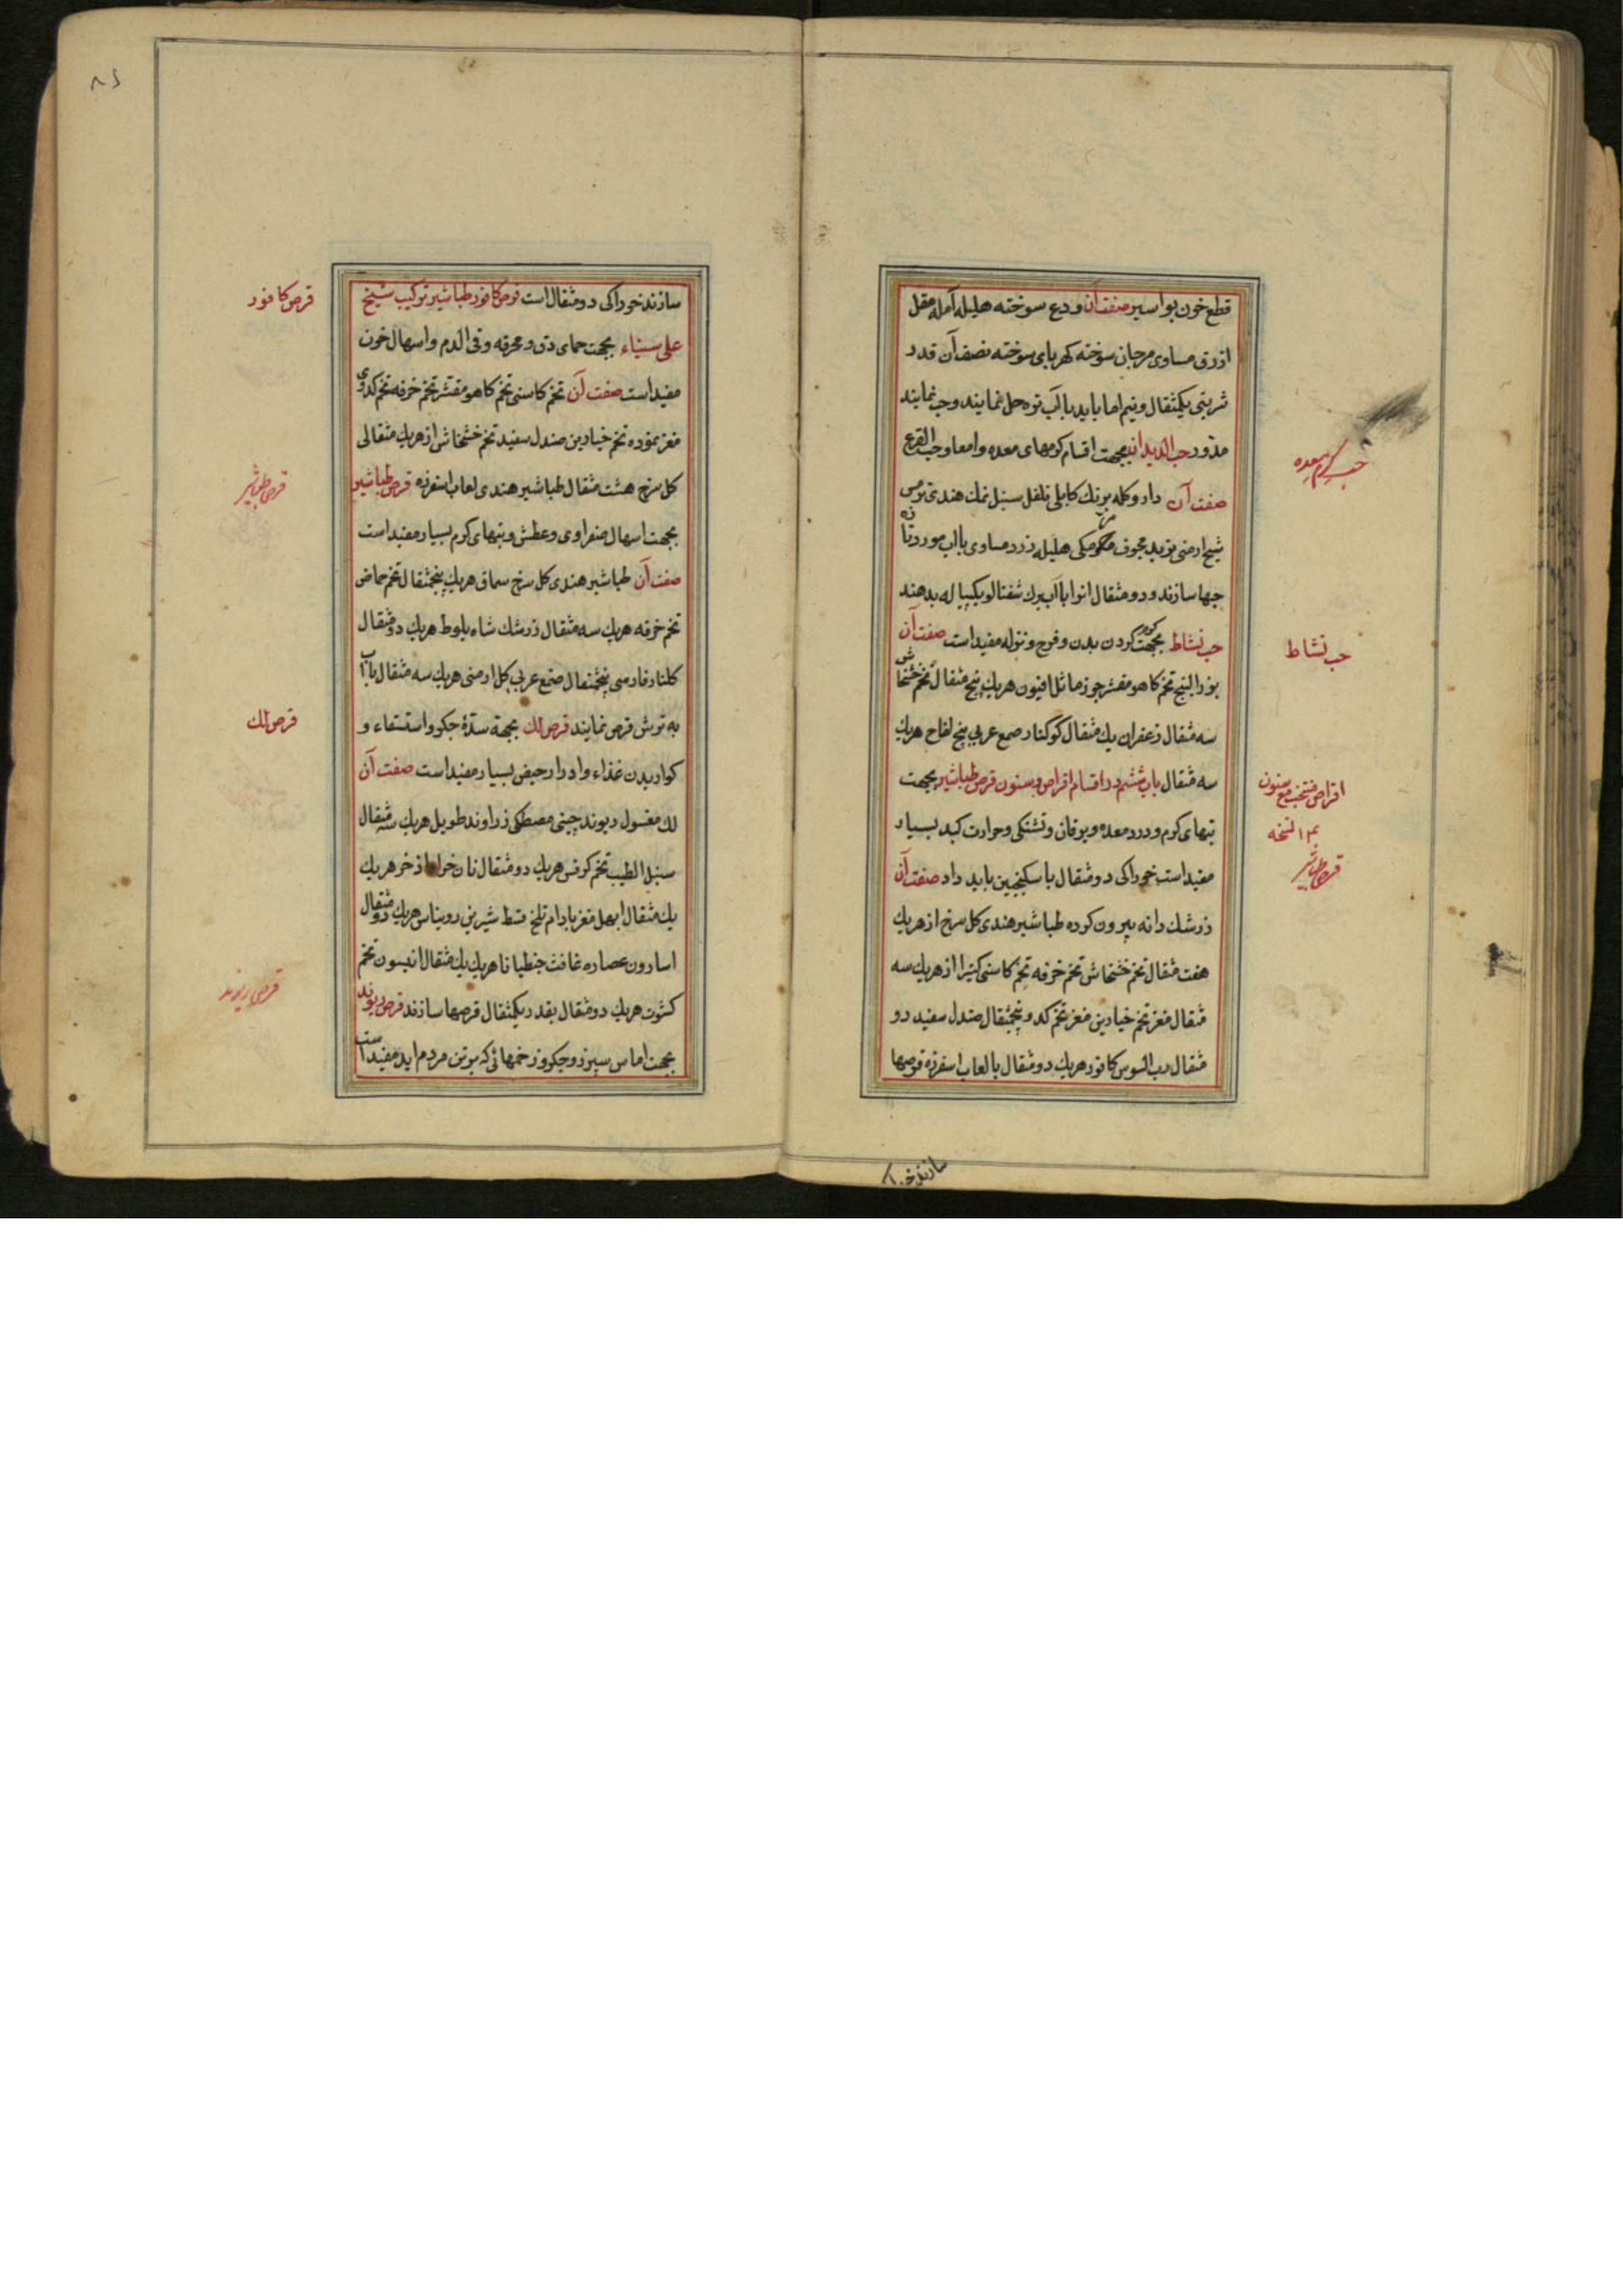 قطع خون بواسیر صفت آن ودع سوخته هلیله آمله مقل
ازرق مساوی مرجان سوخته کهربای سوخته نصف آن قدر
شربتی یکمثقال ونیم اما باید باآب تره حل نمایند وحب نمایند
مدور حب الدیدان بجهت اقسام کرمهای معده وامعا وحب القرع
صفت آن دار وکله برنک کابلی فلفل سنبل نمك هندی ترمس
شیح ارمنی تربد مجوف مکی هلیله زرد مساوی باآب مورد تازه
حبها سازند ودو مثقال انرا باآب برك شفتالو یکپیاله بدهند
حب نشاط بجهت کردن بدن وفرح وتوله مفیداست صفت آن
بزرالبنج تخم کاهو مقشر جوز ماثل افیون هریك پنج مثقال تخم خشخاش
سه مثقال زعفران یك مثقال کوکنار صمغ عربی بیخ لفاح هریك
سه مثقال باب ششم در اقسام اقراص وسنون قرص طباشیر بجهت
تبهای کرم ودرد معده ویرقان وتشنکی وحرارت کبد بسیار
مفیداست خوراکی دو مثقال با سکنجبین باید داد صفت آن
زرشك دانه بیرون کرده طباشیر هندی کل سرخ از هریك
هفت مثقال تخم خشخاش تخم خرفه تخم کاسنی کتیرا از هریك سه
مثقال مغز تخم خیارین مغز تخم کدو پنجمثقال صندل سفید دو
مثقال رب السوس کافور هریك دو مثقال بالعاب اسفرزه قرصها
حب کرم معده
حب نشاط
اقراص منتخب مع سنون
۱۴ نسخه
قرص طباشیر
سازند خوراکی
سازند خوراکی دو مثقال است قرص کافور طباشیر ترکیب شیخ
علی سیناء بجهت حمای دق ومحرقه وقی الدم واسهال خون
مفیداست صفت آن تخم کاسنی تخم کاهو مقشر تخم خرفه تخم کدوی
مغز نموده تخم خیارین صندل سفید تخم خشخاش از هریك مثقالی
کل سرخ هشت مثقال طباشیر هندی لعاب اسفرزه قرص طباشیر
بجهت اسهال صفراوی وعطش وتبهای کرم بسیار مفیداست
صفت آن طباشیر هندی کل سرخ سماق هریك پنجمثقال تخم حماض
تخم خرفه هریك سه مثقال زرشك شاه بلوط هریك دو مثقال
کلنار فارسی پنجمثقال صمغ عربی کل ارمنی هریك سه مثقال باآب
به ترش قرص نمایند قرص لك بجهة سدۀ جکر واستسقاء و
کواریدن غذاء وادرار حیض بسیار مفیداست صفت آن
لك مغسول ریوند چینی مصطکی زراوند طویل هریك سه مثقال
سنبل الطیب تخم کرفس هریك دو مثقال نان خواه اذخر هریك
یك مثقال ابهل مغز بادام تلخ قسط شیرین روناس هریك دو مثقال
اسارون عصاره غافث جنطیانا هریك یك مثقال انیسون تخم
کشوث هریك دو مثقال بقدر یکمثقال قرصها سازند قرص ریوند
بجهت اماس سپرز وجکر وزخمهائی که برتن مردم اید مفیداست
قرص کافور
قرص طباشیر
قرص لك
قرص ریوند